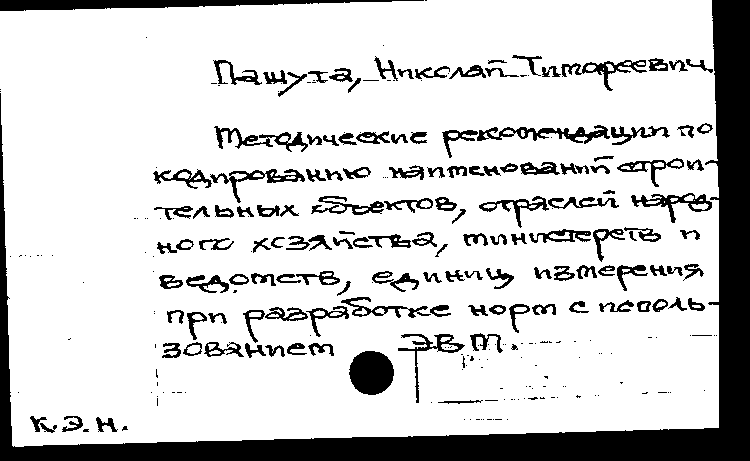 Пашута, Николай Тимофеевич.
Методические рекомендации по
кодированию наименований строи-
тельных объектов, отраслей народ-
ного хозяйства, министерств и
ведомств, единиц измерения
при разработке норм с исполь-
зованием ЭВМ.
К.Э.Н.